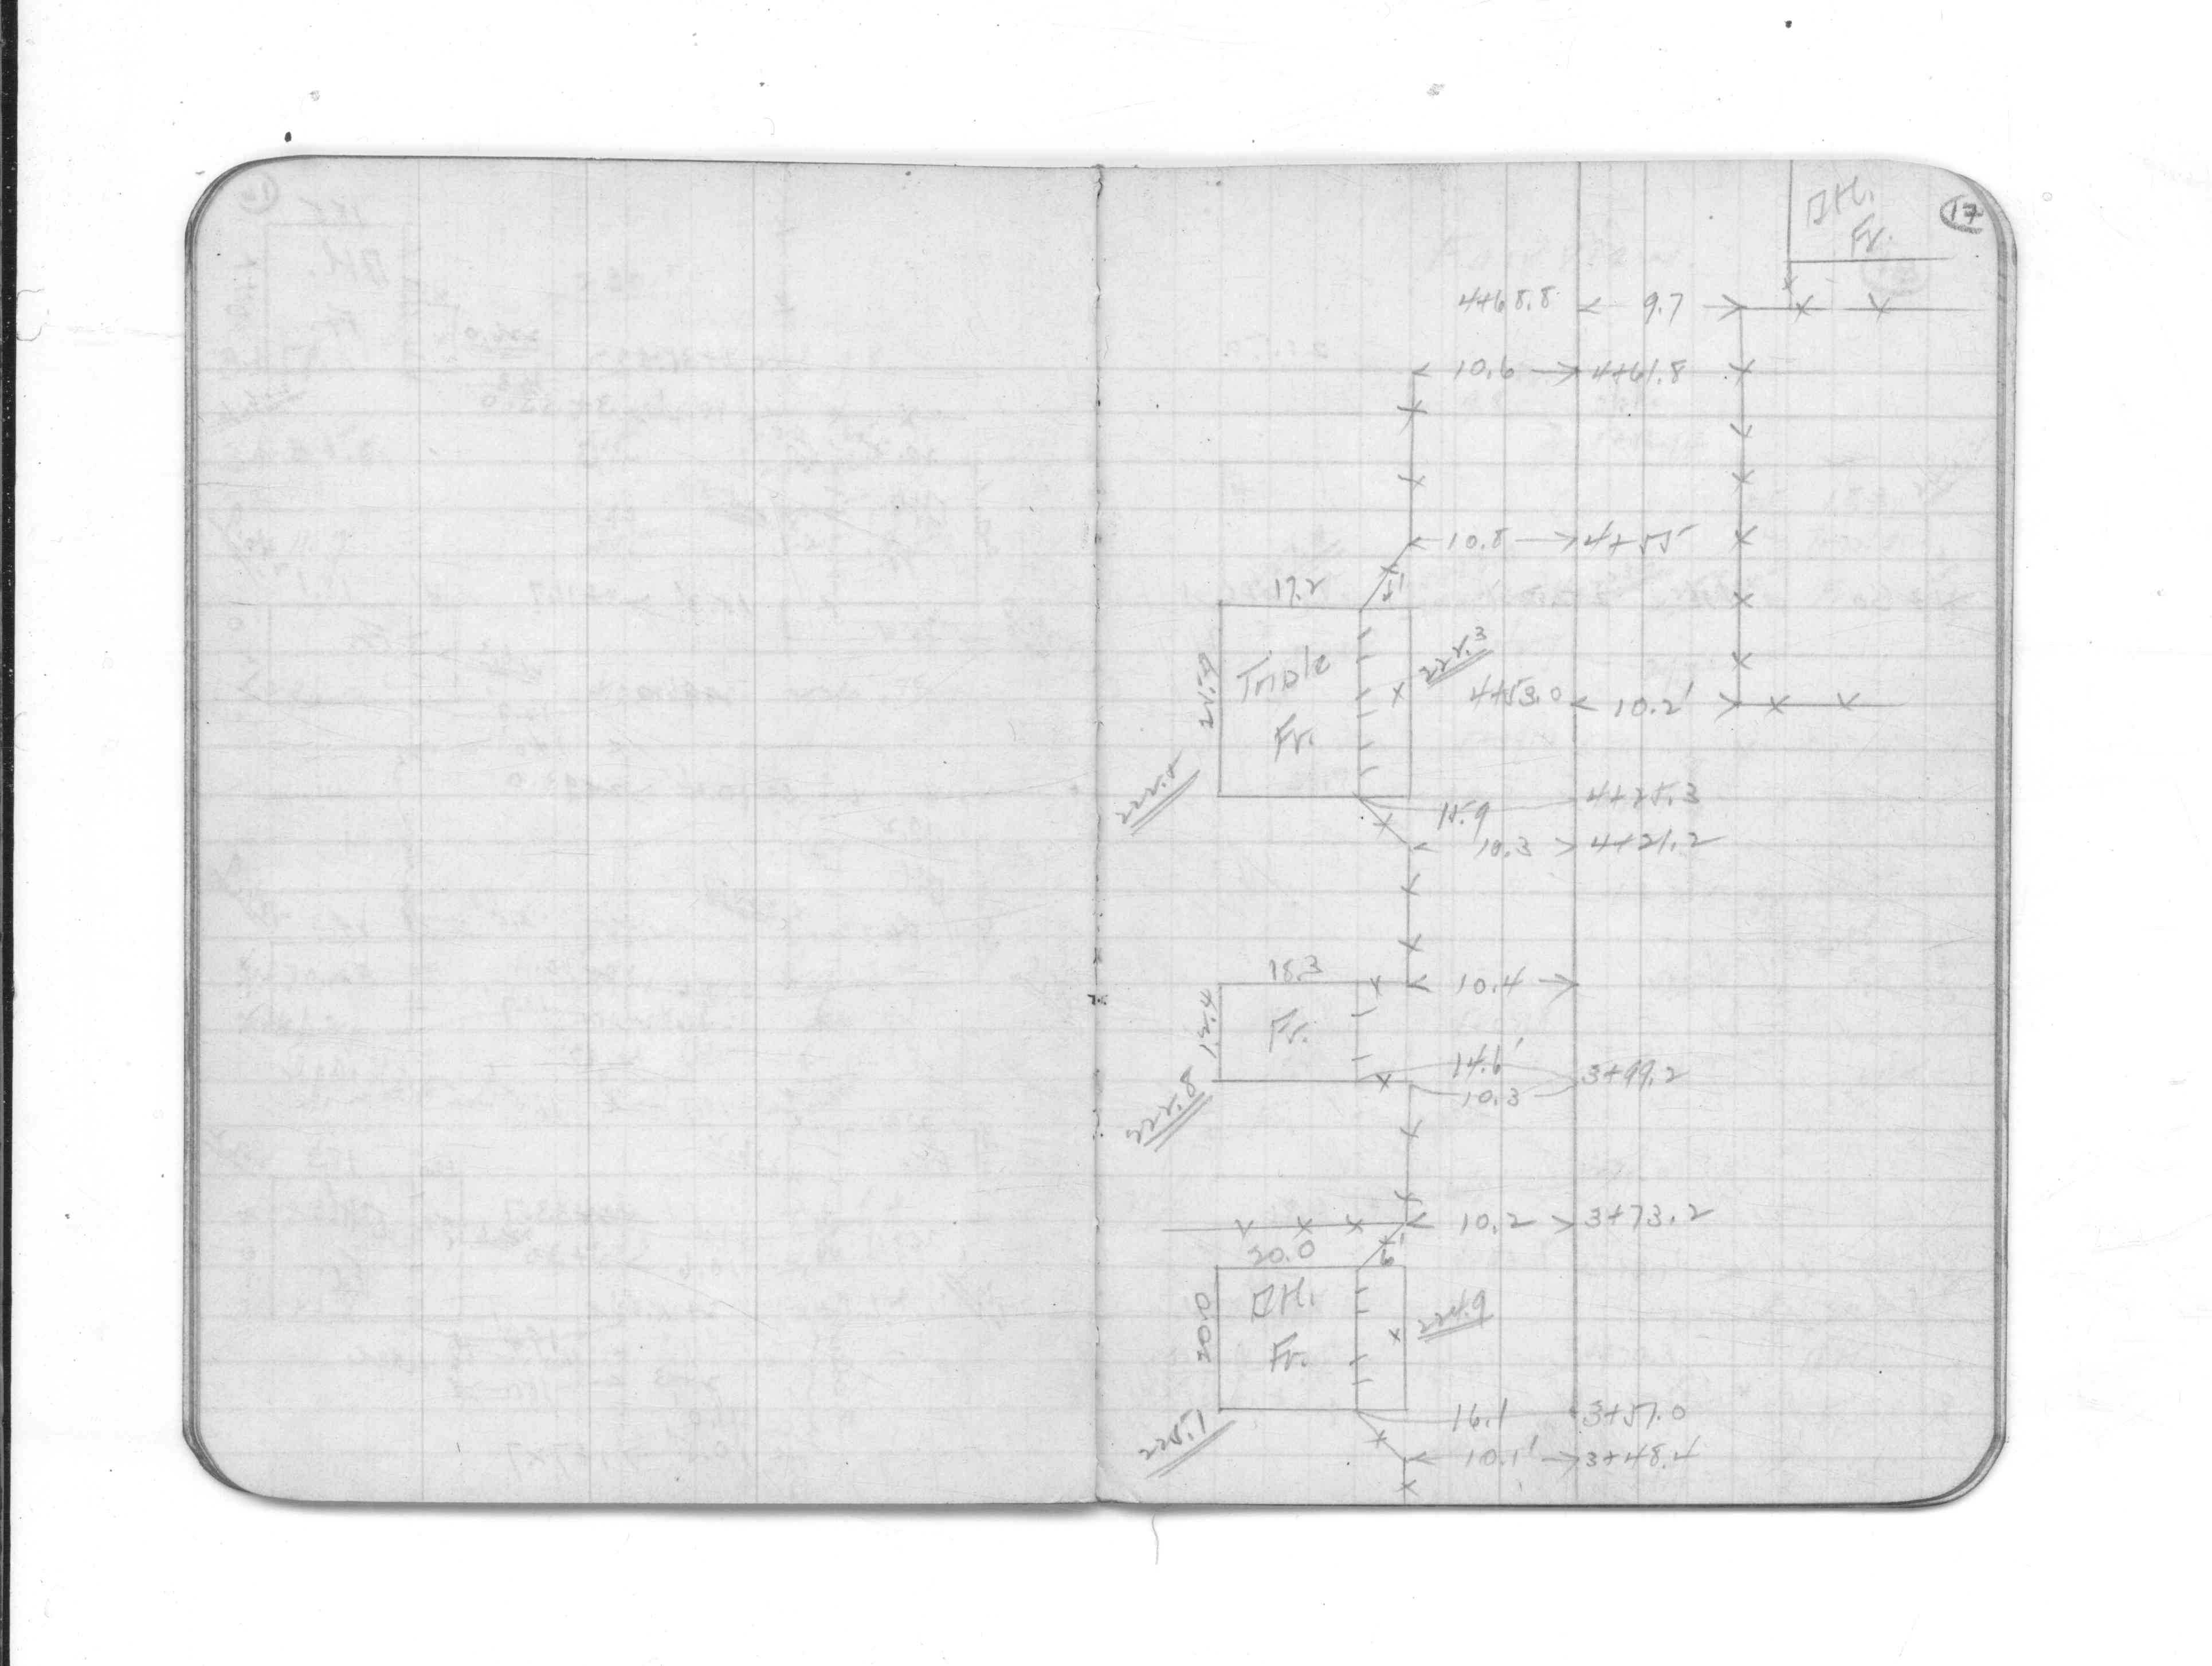 17
D.H.
Fr.
4+68.8 9.7
10.6 4+61.8
10.8 4+55
17.2 5'
Triple
Fr.
4+53.0 10.2'
222.5
15.9 4+25.3
10.3 4+21.2
18.3 10.4
13.4
Fr.
14.6' 3+99.2
10.3
222.8
10.2 3+73.2
20.0 6'
20.0
D.H.
Fr.
224.9
225.1
16.1 3+57.0
10.1' 3+48.4